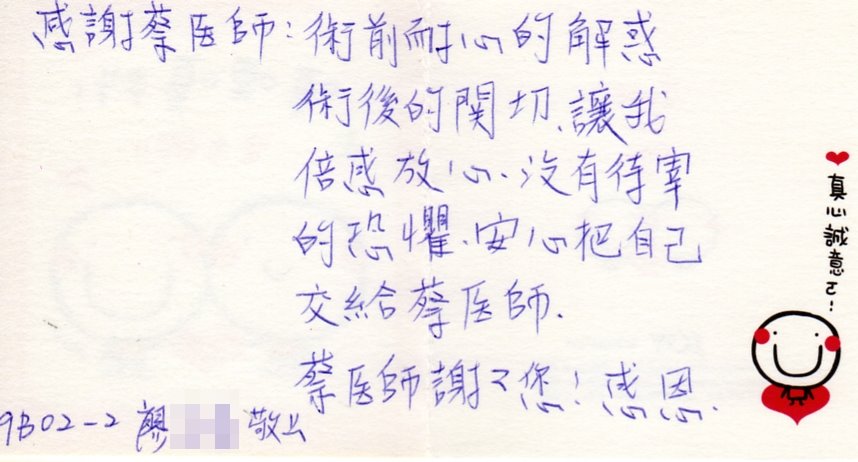 感謝蔡医師:術前耐心的解惑
術後的関切、讓我
倍感放心、沒有待宰
的恐懼、安心把自己
交給蔡医師.
蔡医師謝々您!感恩.
9B02-2 廖 敬上
真心誠意ㄛ!